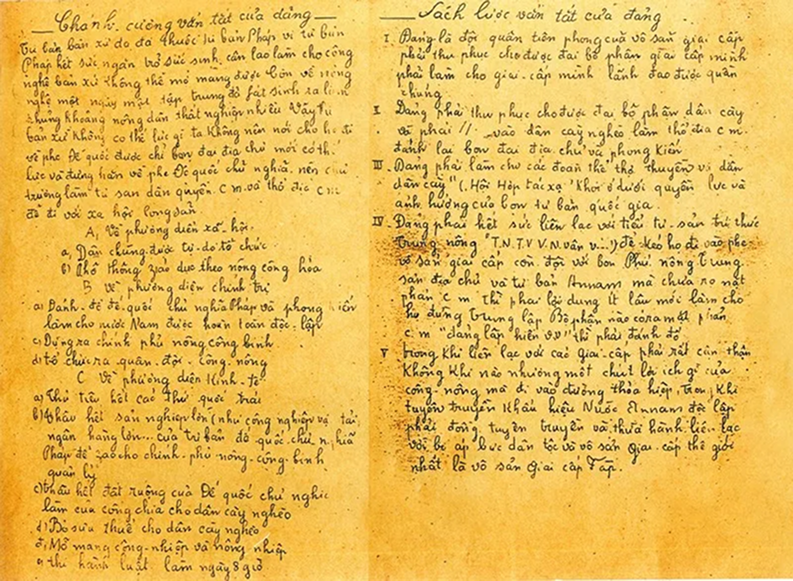 Chanh cương vắn tắt của đảng
Tư bản bản xứ đã thuộc tư bản Pháp, vì tư bản
Pháp hết sức ngăn trở sức sinh
nghệ bản xứ không thể mở mang được Còn về nông
nghệ một ngày một tập trung đã phát sinh ra lắm
khủng khoảng nông dân thất nghiệp nhiều. Vậy tư
bản xứ không có thế lực gì ta không nên nói cho họ đi
về phe Đế quốc được chỉ bọn đại địa chủ mới có thế
lực và đứng hẳn về phe Đế quốc chủ nghĩa. nên chủ
trương làm tư sản dân quyền. c m. và thổ địa c m
để đi tới xã hội cộng sản
A, Về phương diện xã hội.
a, Dân chúng được tự do tổ chức
b) Phổ thông giáo dục theo nông công hóa
B Về phương diện chính trị
a) Đánh đổ đế quốc chủ nghĩa Pháp và phong kiến
làm cho nước Nam được hoàn toàn độc lập
c) Dựng ra chính phủ nông công binh
d) tổ chức ra quân đội công nông
C Về phương diện kinh tế
a) Thủ tiêu hết các thứ quốc trái
b) thâu hết sản nghiệp lớn (như công nghiệp vận tải
ngân hàng lớn... của tư bản đế quốc chủ nghĩa
Pháp để giao cho chính phủ nông công binh
quản lý
c) thâu hết đất ruộng của Đế quốc chủ nghĩa
làm của công chia cho dân cày nghèo
d) Bỏ sưu thuế cho dân cày nghèo
đ) Mở mang công nghiệp và nông nghiệp
thi hành luật làm ngày 8 giờ
Sách lược vắn tắt của đảng
I. Đảng là đội quân tiên phong của vô sản giai cấp
phải thu phục cho được đại bộ phận giai cấp mình
phải làm cho giai cấp mình lãnh đạo được quần
chúng
II Đảng phải thu phục cho được đại bộ phận dân cày
và phải // vào dân cày nghèo làm thổ địa c m.
đánh lại bọn đại địa chủ và phong kiến
III Đảng phải làm cho các đoàn thể thợ thuyền và dân
dân cày" (. Hội Hợp tác xã " khỏi ở dưới quyền lực và
ảnh hưởng của bọn tư bản quốc gia
IV Đảng phải hết sức liên lạc với tiểu tư sản trí thức
trung nông "T.N. T V V.N. vân v...!) để kéo họ đi vào phe
vô sản giai cấp còn đội với bọn Phú nông trung
sản địa chủ và tư bản Annam mà chưa rõ mặt
phản c m thì phải lợi dụng ít lâu mới làm cho
họ đứng trung lập Bộ phận nào có ra mặt phản
c m "đảng lập hiến v.v" thì phải đánh đổ
V trong khi liên lạc với các giai cấp phải rất cẩn thận
không khi nào nhượng một chút lợi ích gì của
công nông mà đi vào đường thỏa hiệp, trong khi
tuyên truyền khẩu hiệu Nước Annam độc lập
phải đồng tuyên truyền và thực hành liên lạc
với bị áp bức dân tộc và vô sản giai cấp thế giới
nhất là vô sản Giai cấp Fáp.